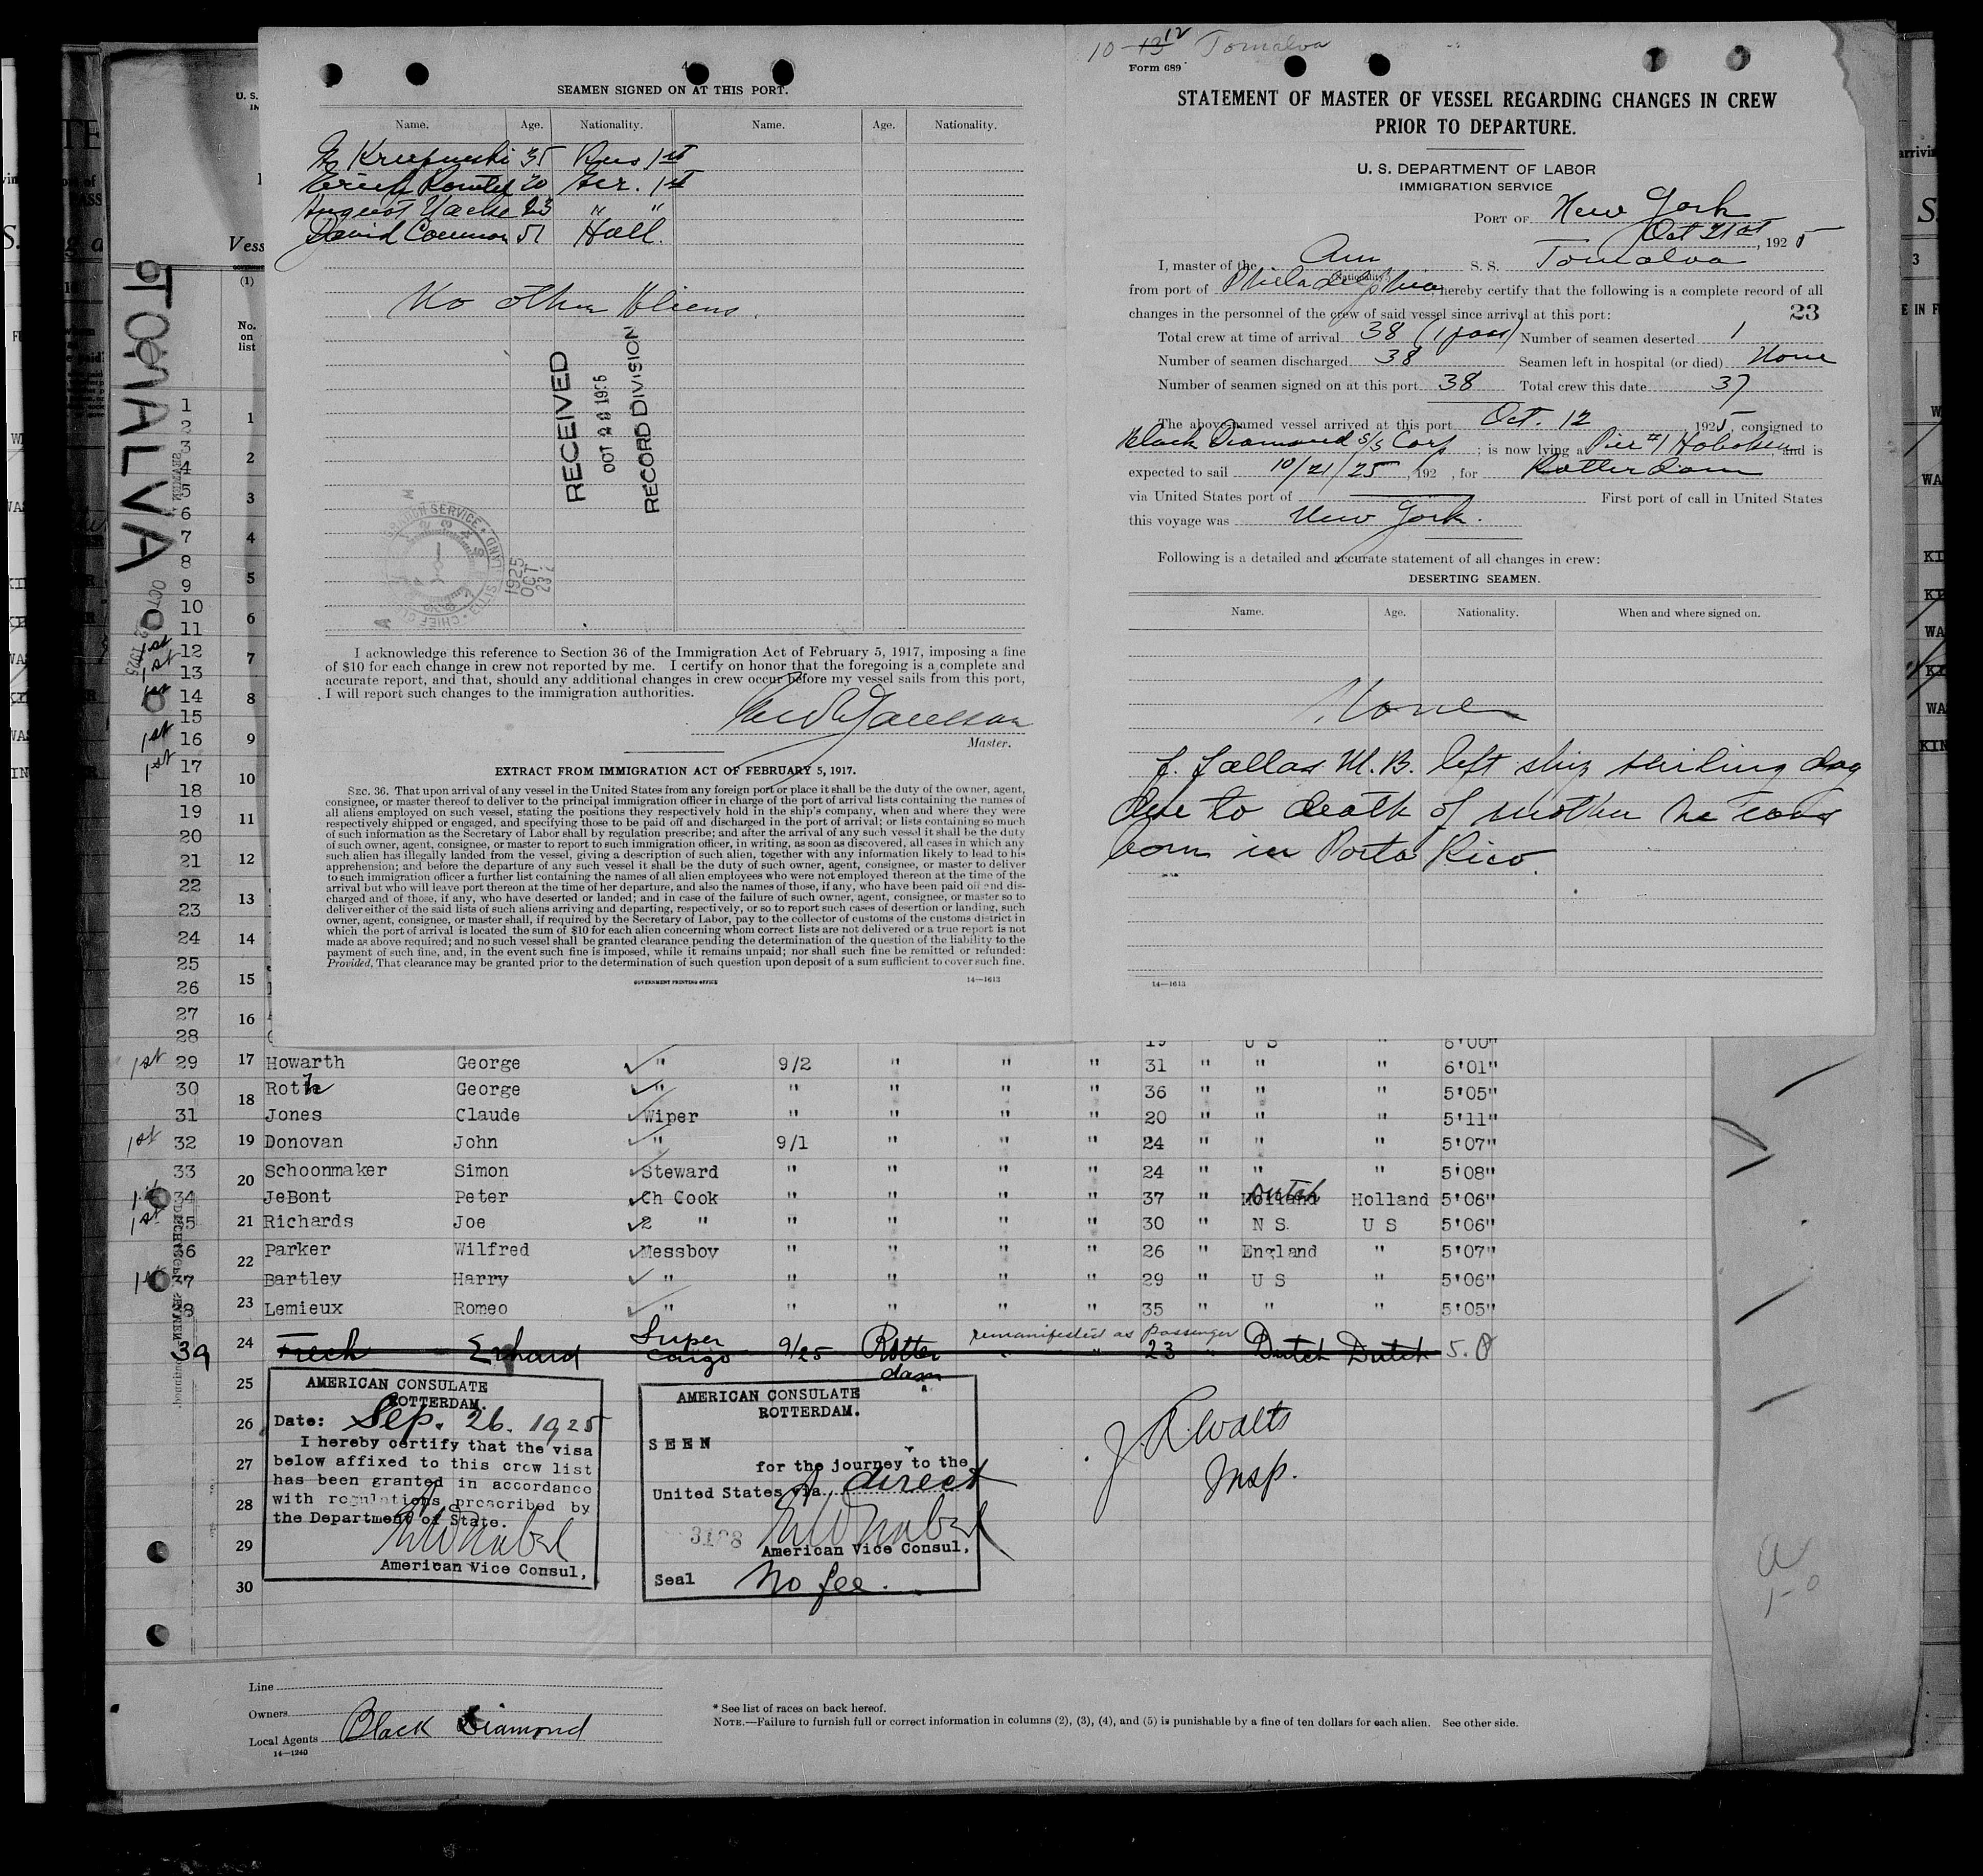 4
SEAMEN SIGNED ON AT THIS PORT.
Name. Age. Nationality. Name. Age. Nationality.
35 Rus 1st
Erich 20 Ger. 1st
August 23 " "
David 51 Holl.
No other Aliens.
RECEIVED
OCT 1925
RECORD DIVISION
ELLIS
1925
OCT
23
I acknowledge this reference to Section 36 of the Immigration Act of February 5, 1917, imposing a fine
of $10 for each change in crew not reported by me. I certify on honor that the foregoing is a complete and
accurate report, and that, should any additional changes in crew occur before my vessel sails from this port,
I will report such changes to the immigration authorities.
Master.
EXTRACT FROM IMMIGRATION ACT OF FEBRUARY 5, 1917.
SEC. 36. That upon arrival of any vessel in the United States from any foreign port or place it shall be the duty of the owner, agent,
consignee, or master thereof to deliver to the principal immigration officer in charge of the port of arrival lists containing the names of
all aliens employed on such vessel, stating the positions they respectively hold in the ship's company, when and where they were
respectively shipped or engaged, and specifying those to be paid off and discharged in the port of arrival; or lists containing so much
of such information as the Secretary of Labor shall by regulation prescribe; and after the arrival of any such vessel it shall be the duty
of such owner, agent, consignee, or master to report to such immigration officer, in writing, as soon as discovered, all cases in which any
such alien has illegally landed from the vessel, giving a description of such alien, together with any information likely to lead to his
apprehension; and before the departure of any such vessel it shall be the duty of such owner, agent, consignee, or master to deliver
to such immigration officer a further list containing the names of all alien employees who were not employed thereon at the time of the
arrival but who will leave port thereon at the time of her departure, and also the names of those, if any, who have been paid off and dis-
charged and of those, if any, who have deserted or landed; and in case of the failure of such owner, agent, consignee, or master so to
deliver either of the said lists of such aliens arriving and departing, respectively, or so to report such cases of desertion or landing, such
owner, agent, consignee, or master shall, if required by the Secretary of Labor, pay to the collector of customs of the customs district in
which the port of arrival is located the sum of $10 for each alien concerning whom correct lists are not delivered or a true report is not
made as above required; and no such vessel shall be granted clearance pending the determination of the question of the liability to the
payment of such fine, and, in the event such fine is imposed, while it remains unpaid; nor shall such fine be remitted or refunded:
Provided, That clearance may be granted prior to the determination of such question upon deposit of a sum sufficient to cover such fine.
GOVERNMENT PRINTING OFFICE 14—1613
10-13 12 Tomalva
Form 689
STATEMENT OF MASTER OF VESSEL REGARDING CHANGES IN CREW
PRIOR TO DEPARTURE.
U. S. DEPARTMENT OF LABOR
IMMIGRATION SERVICE
PORT OF New York
Oct 21st, 1925
I, master of the Am (Nationality) S. S. Tomalva
from port of Philadelphia hereby certify that the following is a complete record of all
changes in the personnel of the crew of said vessel since arrival at this port: 23
Total crew at time of arrival 38 (1 pass) Number of seamen deserted 1
Number of seamen discharged 38 Seamen left in hospital (or died) None
Number of seamen signed on at this port 38 Total crew this date 37
The above-named vessel arrived at this port Oct. 12 1925, consigned to
Black Diamond S/S Corp; is now lying a Pier #1 Hoboken, and is
expected to sail 10/21/25, 192 , for Rotterdam
via United States port of First port of call in United States
this voyage was New York.
Following is a detailed and accurate statement of all changes in crew:
DESERTING SEAMEN.
Name. Age. Nationality. When and where signed on.
None
J. Fallas M.B. left ship sailing day
due to death of mother he was
born in Porto Rico.
14—1613
TOMALVA
OCT 1925
U. S.
Vess
(1)
No.
on
list
29 17 Howarth George " 9/2 " " " 31 " " " 6'01"
30 18 Roth George " " " " " 36 " " " 5'05"
31 Jones Claude Wiper " " " " 20 " " " 5'11"
32 19 Donovan John " 9/1 " " " 24 " " " 5'07"
33 20 Schoonmaker Simon Steward " " " " 24 " " " 5'08"
34 JeBont Peter Ch Cook " " " " 37 " Holland Dutch Holland 5'06"
35 21 Richards Joe 2 " " " " " 30 " N S. U S 5'06"
36 22 Parker Wilfred Messboy " " " " 26 " England " 5'07"
37 Bartley Harry " " " " " 29 " U S " 5'06"
38 23 Lemieux Romeo " " " " " 35 " " " 5'05"
remanifested as passenger
39 24 Freck Erhard Super Cargo 9/25 Rotterdam " " 23 " Dutch Dutch 5.
25
26
27
28
29
30
AMERICAN CONSULATE
ROTTERDAM.
Date: Sep. 26. 1925
I hereby certify that the visa
below affixed to this crew list
has been granted in accordance
with regulations prescribed by
the Department of State.
American Vice Consul,
AMERICAN CONSULATE
ROTTERDAM.
SEEN
for the journey to the
United States via direct
American Vice Consul,
Seal No fee.
J. R. Watts
Insp.
Line
Owners
Local Agents Black Diamond
14—1240
* See list of races on back hereof.
NOTE.—Failure to furnish full or correct information in columns (2), (3), (4), and (5) is punishable by a fine of ten dollars for each alien. See other side.